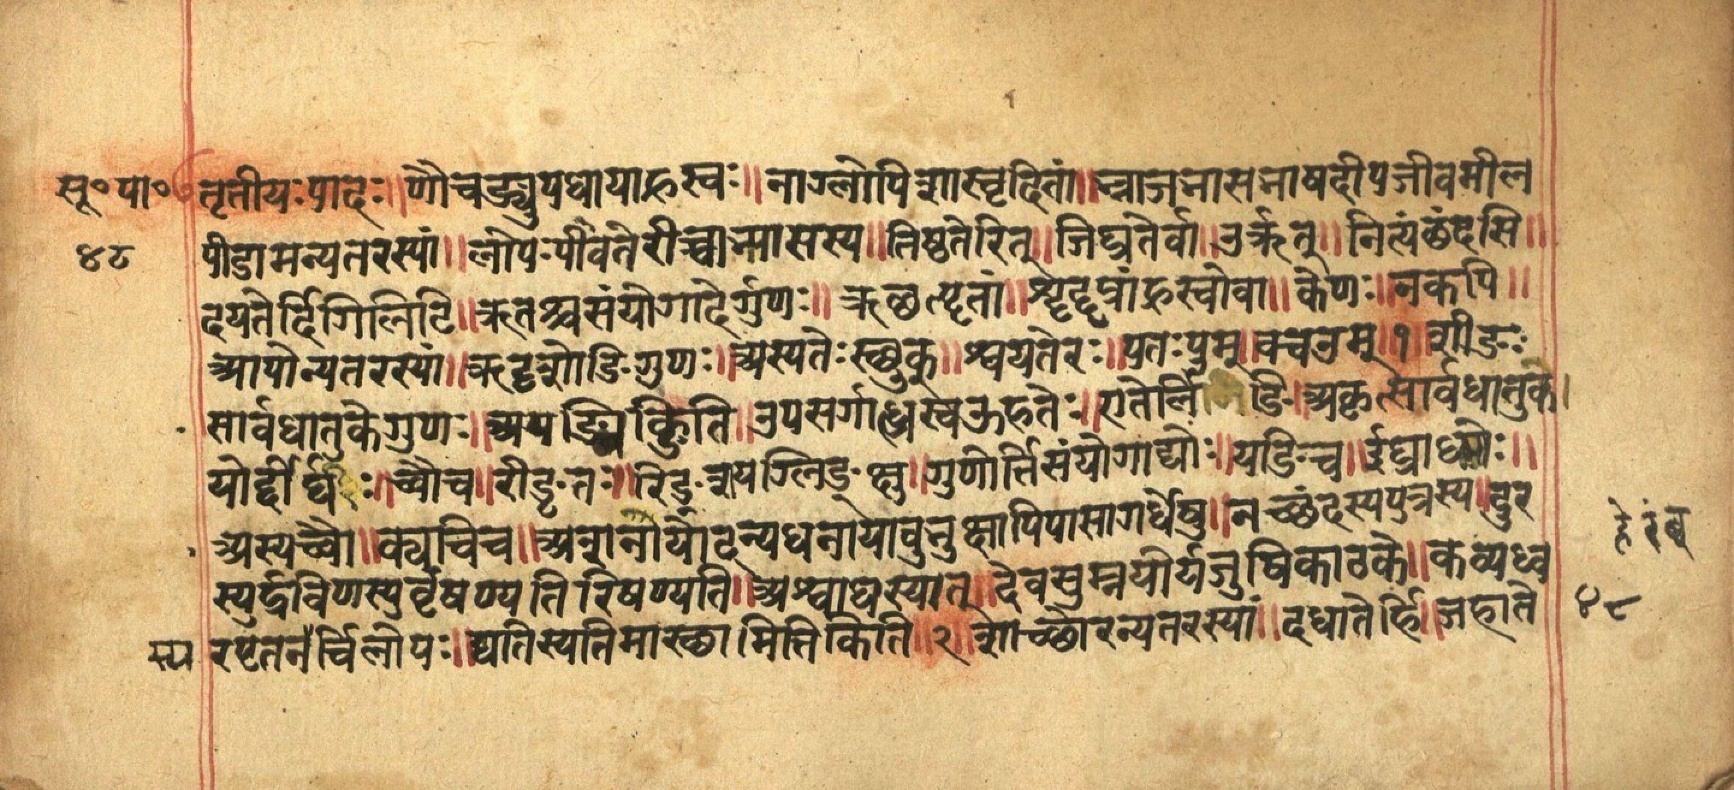 सू॰ पा॰
तृतीयः पादः ॥ णौचङ्युपधायाह्रस्वः ॥ नाग्लोपिशास्वृदितां ॥ भ्राजभासभाषदीपजीवमील
४८
पीडामन्यतरस्यां ॥ लोपःपीबतेरीच्चाभ्यासस्य ॥ तिष्ठतेरित् ॥ जिघ्रतेर्वा ॥ उरृत् ॥ नित्यंछंदसि ॥
दयतेर्दिगिलिटि ॥ ऋतश्चसंयोगादेर्गुणः ॥ ऋछत्यॄतां ॥ शॄदॄप्रांह्रस्वोवा ॥ केणः ॥ नकपि ॥
आपोन्यतरस्यां ॥ ऋदृशोङिगुणः ॥ अस्यतेःस्थुक् ॥ श्वयतेरः ॥ पतःपुम् ॥ वचउम् ॥ १ ॥ शीङः
सार्वधातुकेगुणः ॥ अयङ्यिक्ङिति ॥ उपसर्गाद्ध्रस्वऊहतेः ॥ एतेर्लिङि ॥ अकृत्सार्वधातुके।
योर्दीर्घः ॥ च्वौच ॥ रीङृतः ॥ रिङ्शयग्लिङ्क्षु ॥ गुणोर्त्तिसंयोगाद्योः ॥ यङिच ॥ ईघ्राध्मोः ॥
अस्यच्वौ ॥ क्यचिच ॥ अशनायोदन्यधनायाबुभुक्षापिपासागर्धेषु ॥ नच्छंदस्यपुत्रस्य ॥ दुर
स्युर्द्रविणस्युर्वृषण्यतिरिषण्यति ॥ अश्वाघस्यात् ॥ देवसुम्नयोर्यजुषिकाठके ॥ कव्यध्व
हेरंब
४८
स्य
रपृतनर्चिलोपः ॥ द्यतिस्यतिमास्छामित्तिकिति ॥ २ ॥ शाच्छोरन्यतरस्यां ॥ दधातेर्हि ॥ जहाते